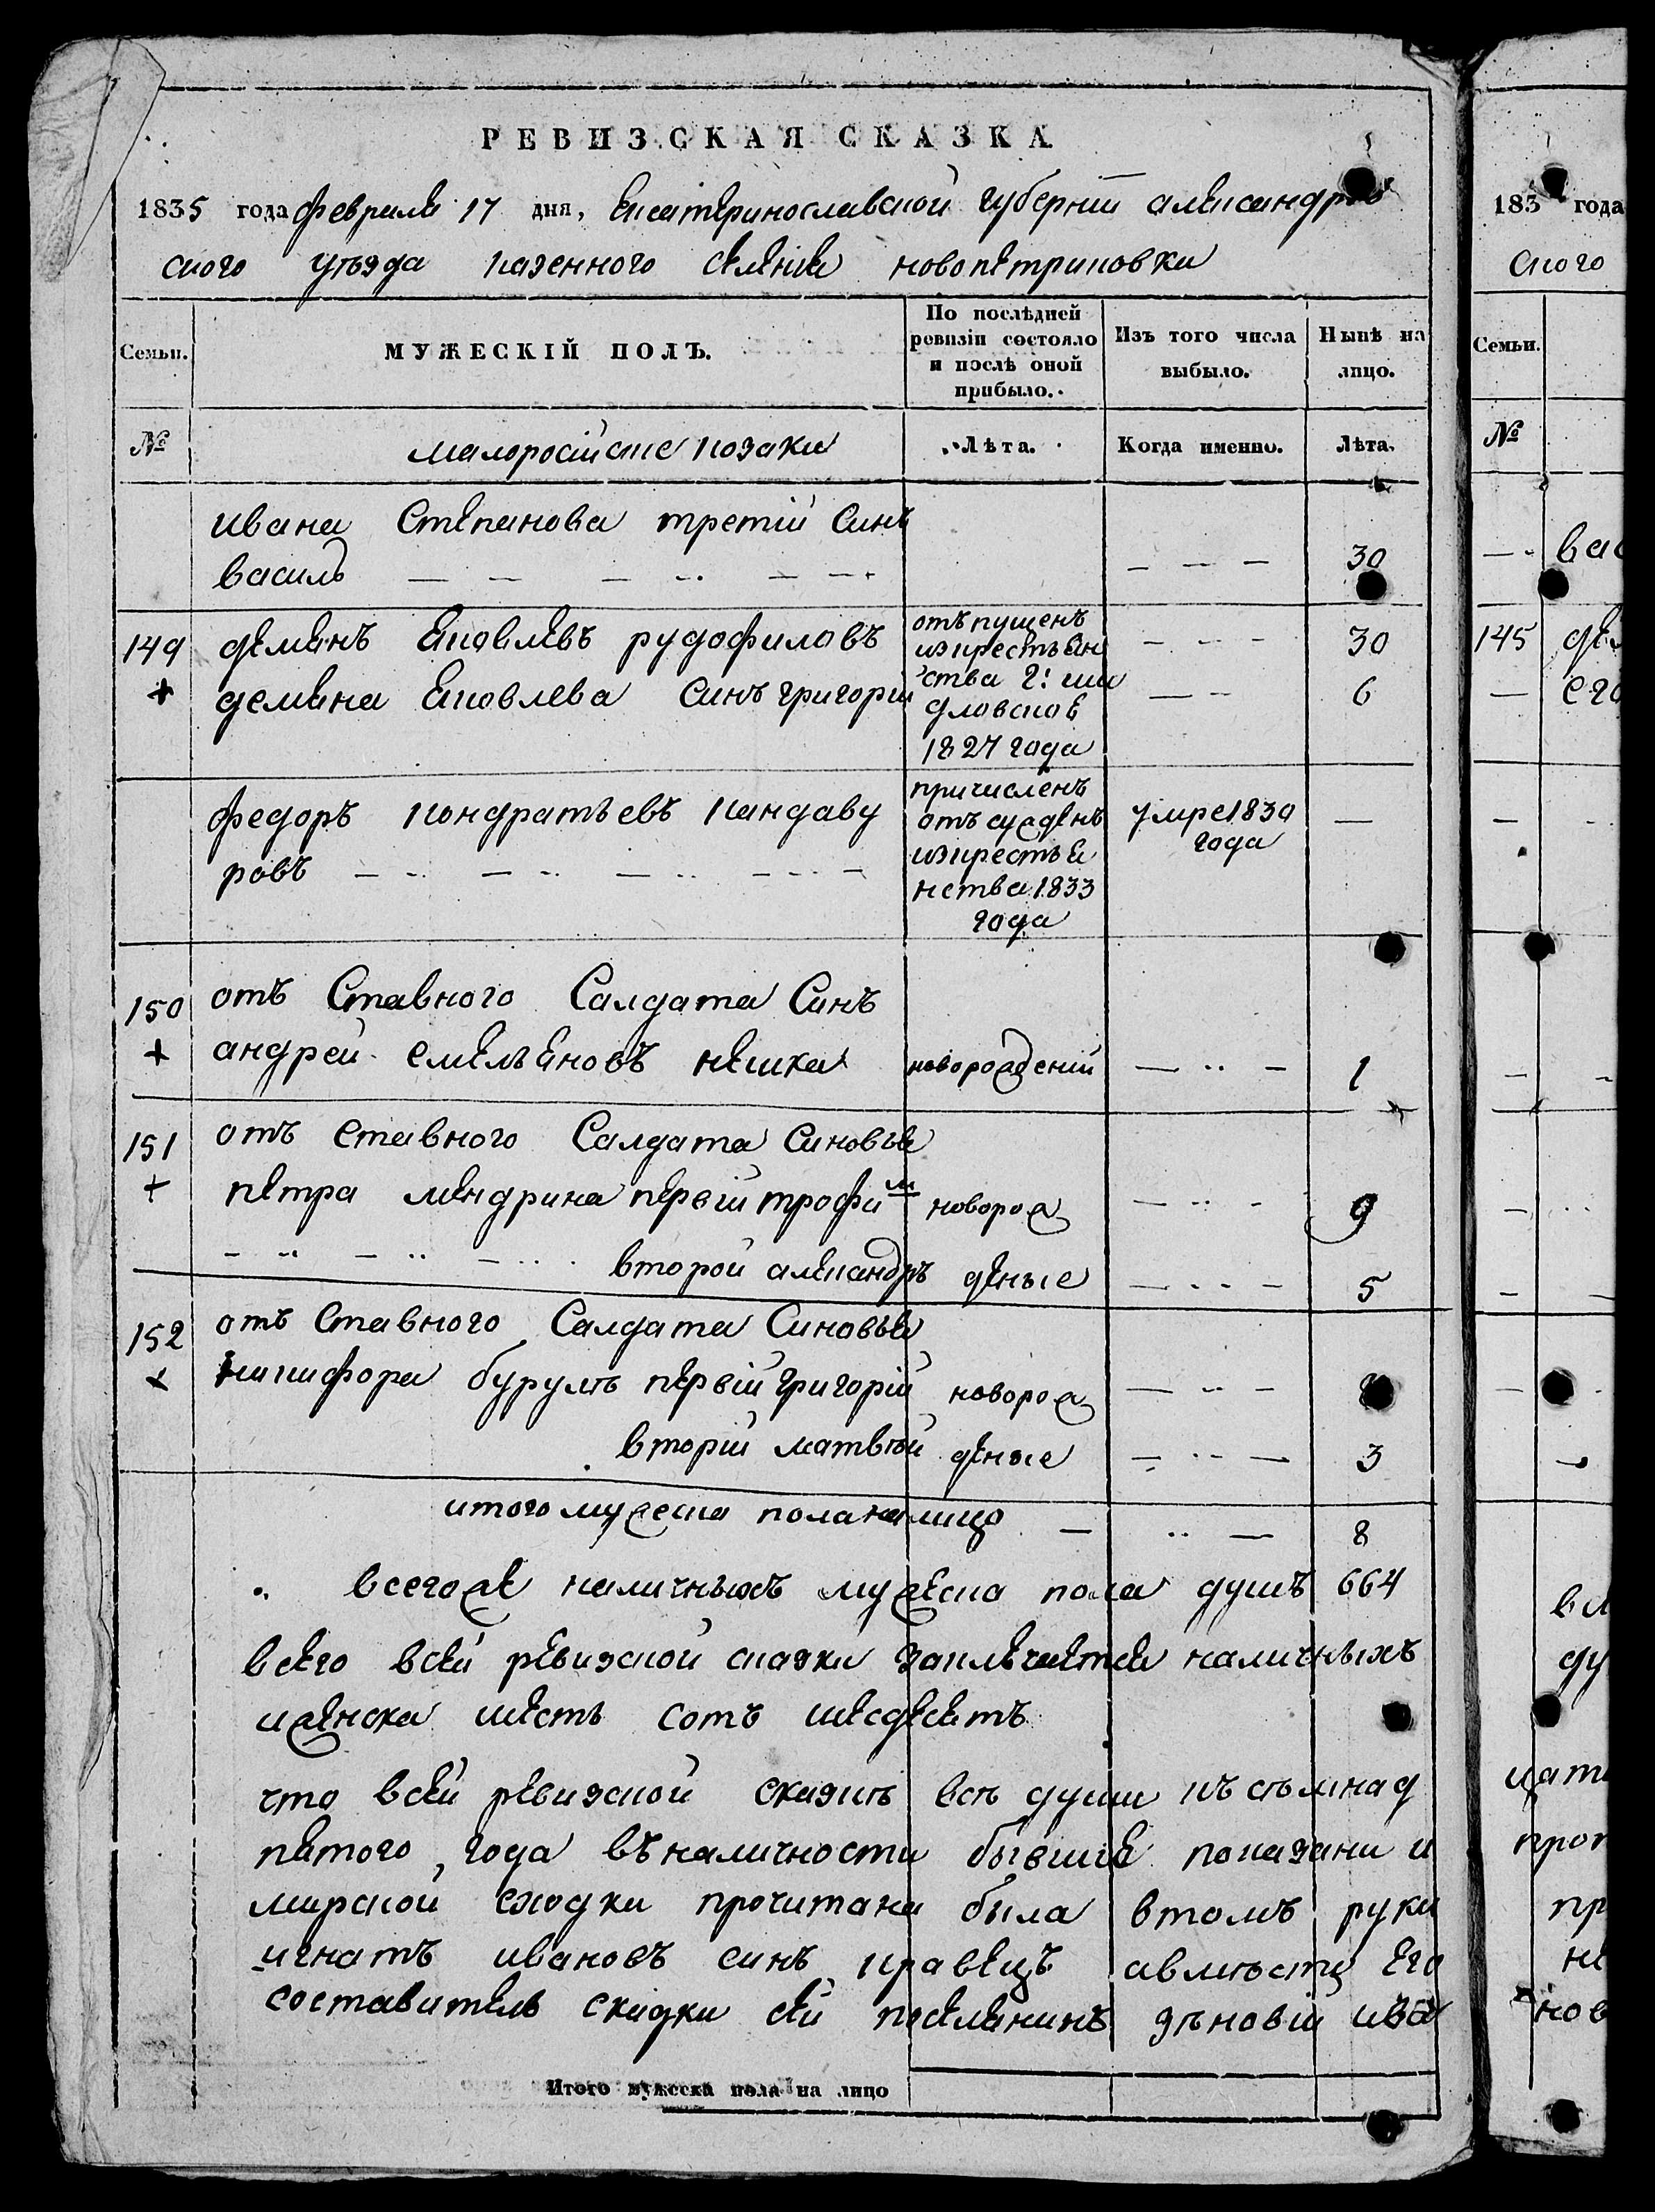 РЕВИЗСКАЯ СКАЗКА
1835 года февраля 17 дня, екатеринославской губернии александров
ского уѣзда казенного селения новопетриковки
Семьи.
МУЖЕСКІЙ ПОЛЪ.
По послѣдней
ревизіи состояло
и послѣ оной
прибыло.
Изъ того числа
выбыло.
Нынѣ на
лицо.
№
малоросійские козаки
Лѣта.
Когда именно.
Лѣта.
ивана Степанова третій синъ
василь 30
149 демянъ яковлевъ рудофиловъ 30
демяна яковлева синъ григорий 6
отъпущенъ
изкрестьян
ства г:
1827 года
федоръ кондратьевъ кандаву
ровъ
причисленъ
отъсужденъ
изкрестья
нства 1833
года
умре 1830
года
150 отъ Ставного Салдата Синъ
андрей емельяновъ нешка новорожденій 1
151 отъ ставного Салдата Синовья
петра мендрина первій трофим новорож 9
второй александръ деные 5
152 отъ Ставного Салдата Синовья
никифора бурумъ первій григорій новорож
вторій матвѣй деные 3
итого мужеска пола налицо 8
всегоже наличныхъ мужеска пола душъ 664
всего всей ревизской сказки заключается наличныхъ
иженска шесть сотъ шесдесятъ
что всей ревизской сказкѣ всѣ души
пятого года въналичности бывшие показани и
мирской сходки прочитана была втомъ руки
игнатъ ивановъ синъ кравецъ его
составитель скаски сей поселянинъ зѣновій ива
Итого мужеска пола на лицо
183 года
ского
Семьи.
№
вас
145 дем
его